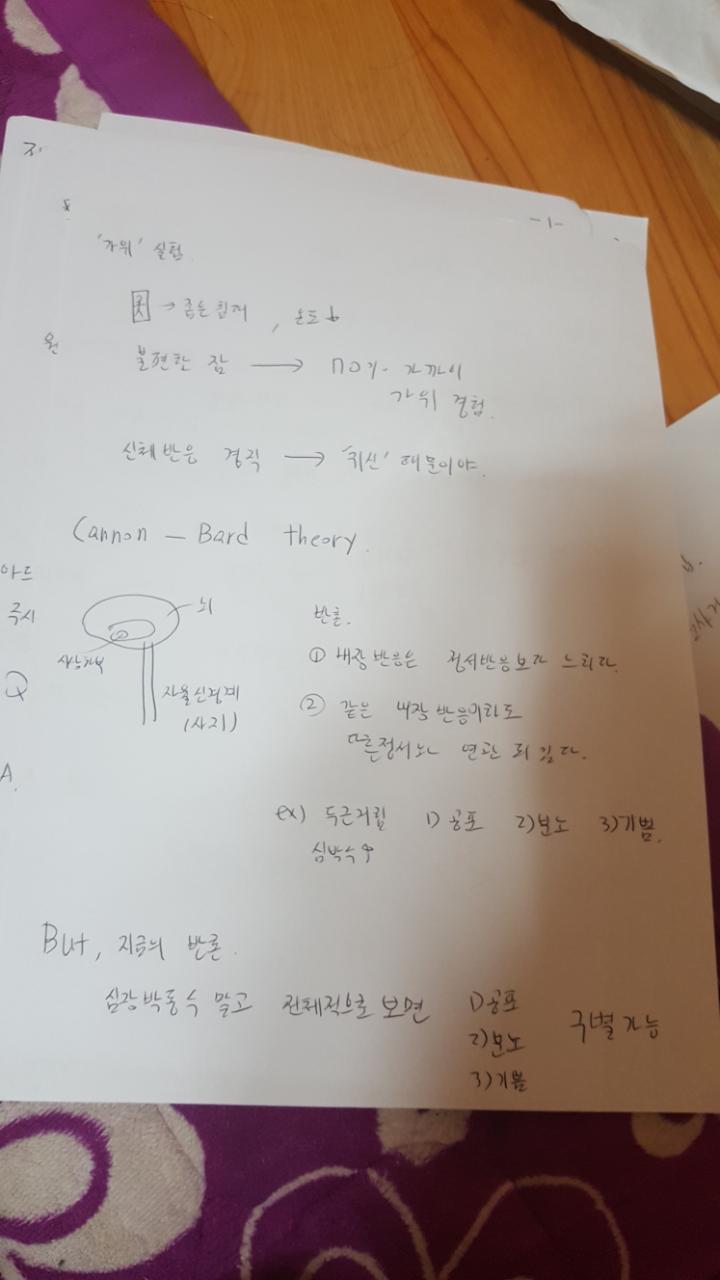 지
-1-
'가위' 실험
→ 좁은 침대, 온도↓
원
불편한 잠 → 70% 가까이
가위 경험.
신체반응 경직 → '귀신' 때문이야.
Cannon - Bard theory.
아드
즉시
뇌
시상하부
자율신경계
(사지)
Q
A.
반론.
① 내장반응은 정서반응보다 느리다.
② 같은 내장반응이라도
다른정서와 연관 되 있다.
ex) 두근거림 1) 공포 2) 분노 3) 기쁨.
심박수↑
But, 지금의 반론.
심장박동수 말고 전체적으로 보면 1) 공포
2) 분노 구별가능
3) 기쁨